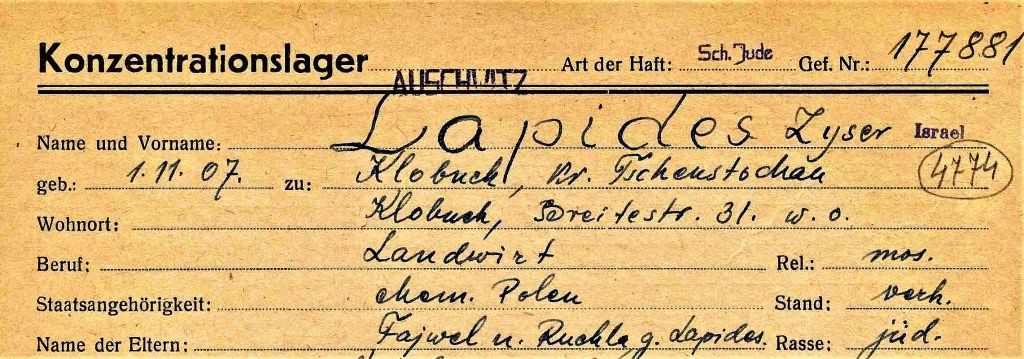 Konzentrationslager AUSCHWITZ Art der Haft: Sch. Jude Gef. Nr.: 177881
Name und Vorname: Lapides Zyser Israel
geb.: 1.11.07. zu: Klobuck, Kr. Tschenstochau 4774
Wohnort: Klobuck, Breitestr. 31. w. o.
Beruf: Landwirt Rel.: mos.
Staatsangehörigkeit: ehem. Polen Stand: verh.
Name der Eltern: Fajwel u. Ruchla g. Lapides. Rasse: jüd.